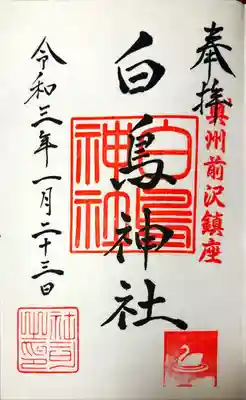 奉拝
奥州前沢鎮座
白鳥神社
白鳥神社
令和三年一月二十三日